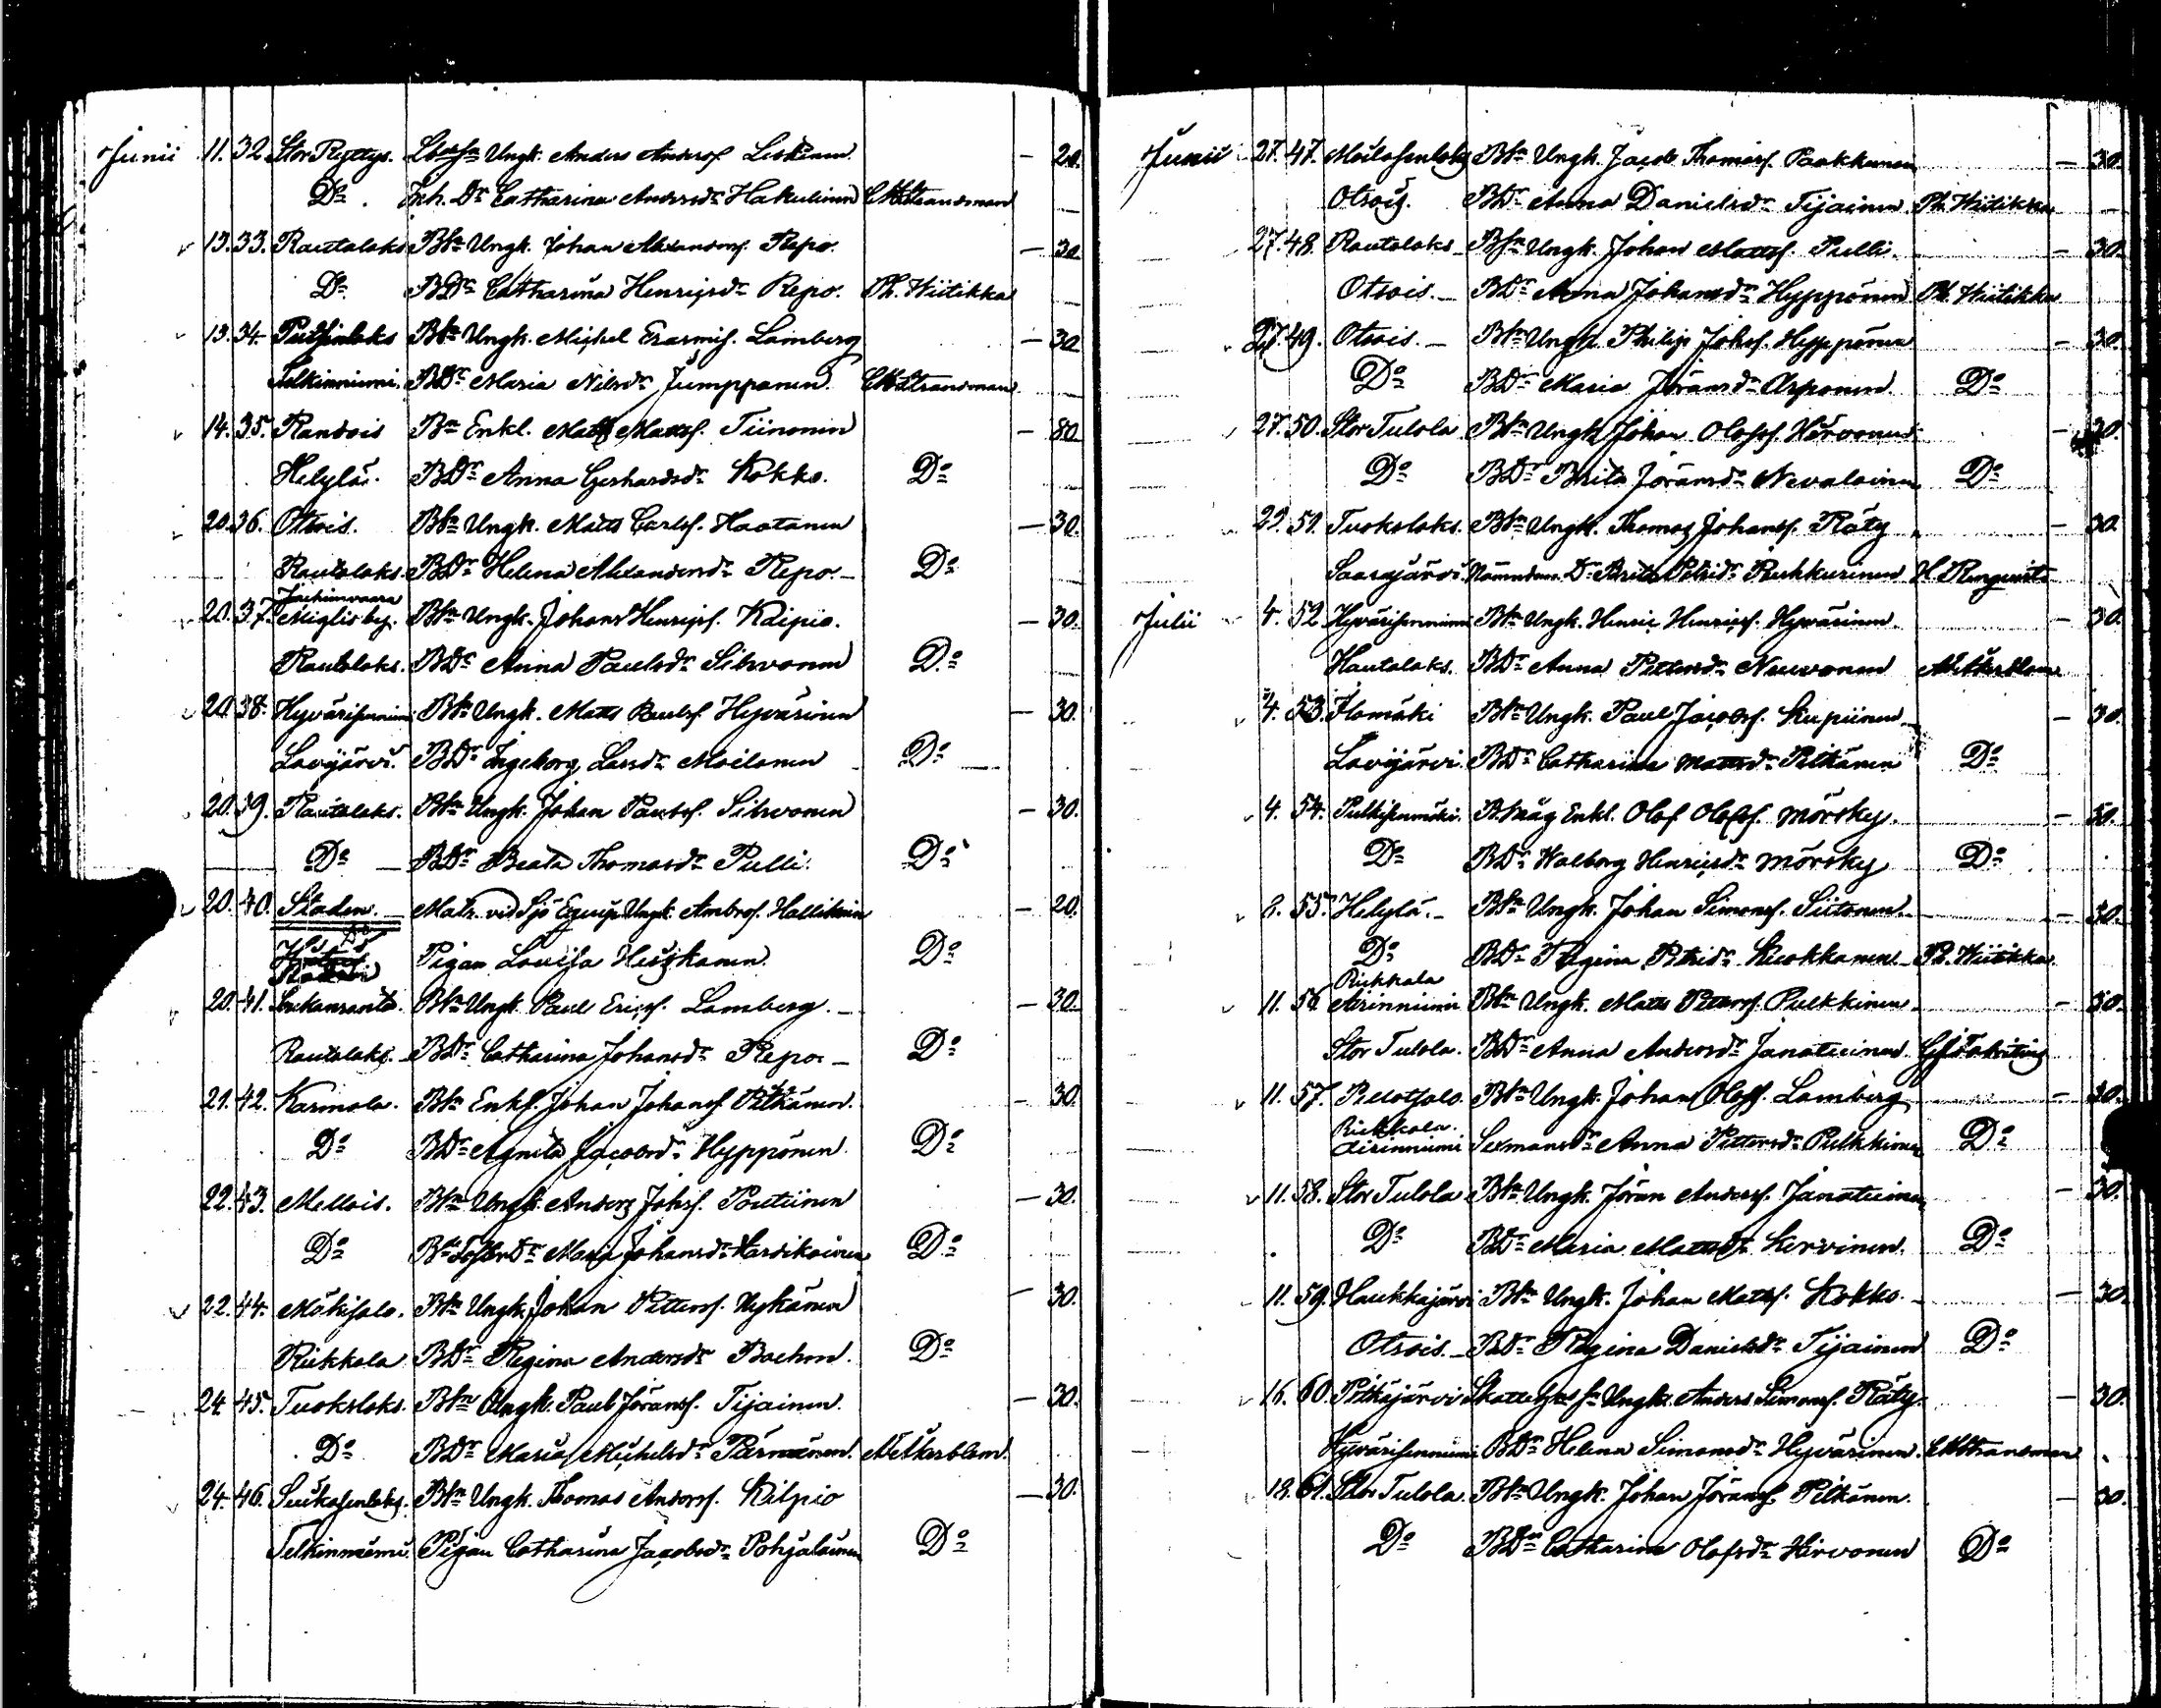 Junii 11. 32. Stor Ryttys. Ungk. Anders Anderss. Leskinen. — 20.
Do. Inh. Dr Catharina Andersdr Hakulinen C M Strandman
13. 33. Rautalaks Bsn Ungk. Johan Alexanderss. Repo. — 30.
Do BDr Catharina Henricsdr Repo. Ph. Wiitikka
13. 34. Bsn Ungk. Michel Erasmis. Lamberg — 30
Telkinniemi. BDr Maria Nilsdr Jumppanen. C M Strandman
14. 35. Randois Bn Enkl. Matts Mattss. Tiinonen — 80
Helylä. BDr Anna Gerhardsdr Kokko. Do
20. 36. Otsois. Bsn Ungk. Matts Carlss. Haatanen — 30.
Rautalaks. BDr Helena Alexandersdr Repo. — Do
Jachimvaara
20. 37. Miglisby. Bsn Ungk. Johan Henricss. Kaipio. — 30.
Rautalaks. BDr Anna Paulsdr Sihvonen Do
20. 38. Hyvärisenniemi Bsn Ungk. Matts Paulss. Hyvärinen — 30.
Lavijärvi. BDr Ingeborg Larsdr Moilanen Do
20. 39. Rautalaks. Bsn Ungk. Johan Paulss. Sihvonen — 30.
Do BDr Beata Thomasdr Pulli. Do
20. 40. Staden. Matr. vid Sjö Equip. Ungk. Ambros. Hallikain — 20.
Do
Pigan Lovisa Heiskanen. Do
20. 41. Leukanranta. Bsn Ungk. Paul Ericss. Lamberg. — 30.
Rautalaks. BDr Catharina Johansdr Repo. — Do
21. 42. Karmala. Bsn Enkl. Johan Johanss. Pitkänen. — 30.
Do BDr Agneta Jacobsdr Hyppönen. Do
22. 43. Mellois. Bsn Ungk. Anders Johss. Poutiinen — 30.
Do Maria Johansdr Kardikainen Do
22. 44. Mäkisalo. Bsn Ungk. Johan Petterss. Nykänen — 30.
Riekkala BDr Regina Andersdr Backm. Do
24. 45. Tuokslaks. Bsn Ungk. Paul Jöranss. Tijainen. — 30.
Do BDr Maria Michelsdr Pärnänen. A E Åkerblom.
24. 46. Suikasenlaks. Bsn Ungk. Thomas Anderss. Kilpio — 30.
Telkinniemi. Pigan Catharina Jacobsdr Pohjalainen Do
Junii 27. 47. Moilasenlaks Bsn Ungk. Jacob Thomass. Paakkunen — 30.
Otsois. BDr Anna Danielsdr Tijainen Ph. Wiitikka
27. 48. Rautalaks Bsn Ungk. Johan Mattss. Pulli. — 30.
Otsois. — BDr Anna Johansdr Hyppönen Ph. Wiitikka
27. 49. Otsois. — Bsn Ungk. Philip Johss. Hyppönen — 30.
Do BDr Maria Jöransdr Asponen. Do
27. 50. Stor Tulola Bsn Ungk. Johan Olofss. Hirvonen — 30.
Do BDr Brita Jöransdr Nevalainen Do
29. 51. Tuokslaks. Bsn Ungk. Thomas Johanss. Räty — 30.
Saarajärvi. Nämndem. Dr Brita Petridr Ruhkurinen H. Rungquist
Julii 4. 52 Hyvärisenniemi Bsn Ungk. Henric Henricss. Hyvärinen. — 30.
Hautalaks. BDr Anna Pettersdr Neuvonen A E Åkerblom
4. 53. Ilomäki Bsn Ungk. Paul Jacobss. Kupiinen — 30.
Lavijärvi. BDr Catharina Mattsdr Pitkänen Do
4. 54. Pulkisenmäki. B. måg Enkl. Olof Olofss. Mörsky. — 50.
Do BDr Walborg Henricsdr Mörsky Do
8. 55. Helylä. — Bsn Ungk. Johan Simonss. Siitonen. — 30.
Do BDr Regina Petridr Kuokkanen. — Ph. Wiitikka
Riekkala
11. 56. Airinniemi Bsn Ungk. Matts Petterss. Pulkkinen — 30.
Stor Tulola. BDr Anna Andersdr Janatuinen
11. 57. Pellotsalo Bsn Ungk. Johan Olofss. Lamberg — 30.
Riekkala.
Airinniemi Sexmansdr Anna Pettersdr Pulkkinen Do
11. 58. Stor Tulola Bsn Ungk. Jöran Anderss. Janatuinen — 30.
Do BDr Maria Mattsdr Kervinen. Do
11. 59. Haukkajärvi Bsn Ungk. Johan Mattss. Kokko. — 30.
Otsois. — BDr Regina Danielsdr Tijainen Do
16. 60. Pitkäjärvi Ungk. Anders Simonss. Räty. — 30.
Hyvärisenniemi BDr Helena Simonsdr Hyvärinen. C M Strandman
18. 61. Stor Tulola. Bsn Ungk. Johan Jöranss. Pitkänen. — 30.
Do BDr Catharina Olofsdr Hirvonen Do